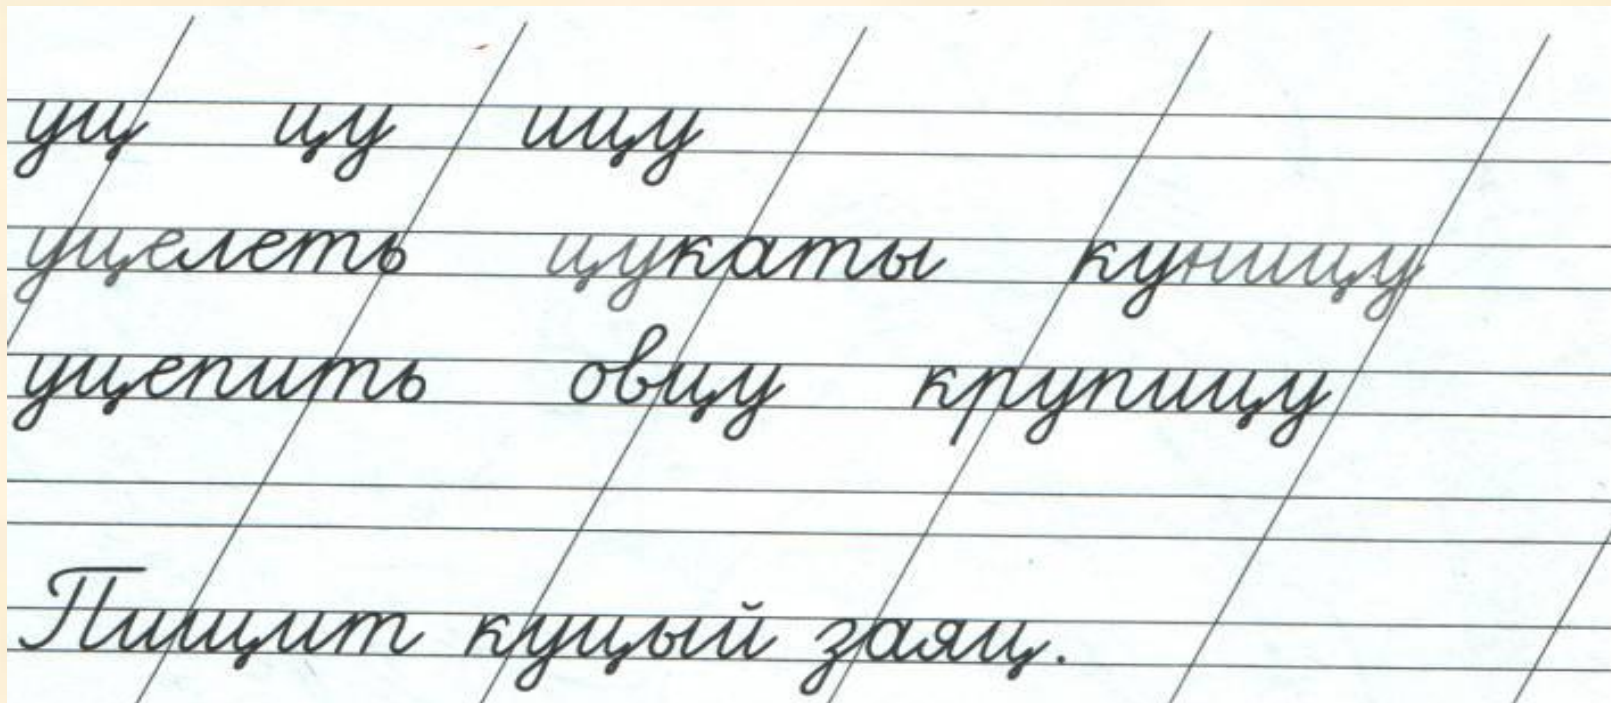 уц цу ицу
уцелеть цукаты куницу
уцепить овцу крупицу
Пищит куцый заяц.